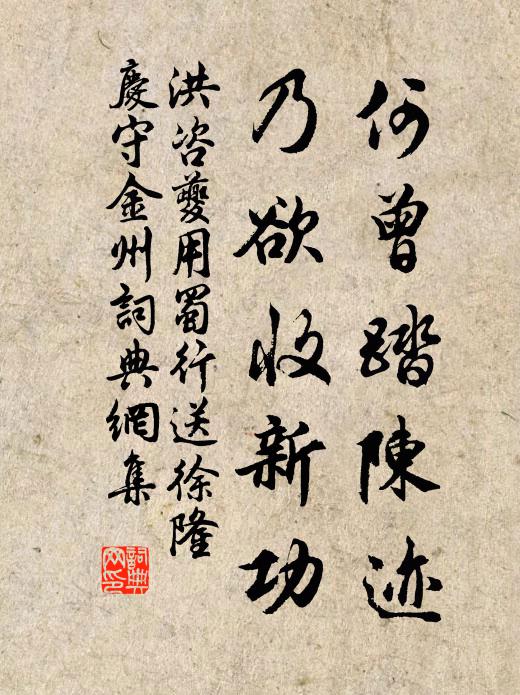 何曾踏陳迹
乃欲收新功
洪咨夔用蜀行送徐隆
慶守金州詞典網集
詞典网印